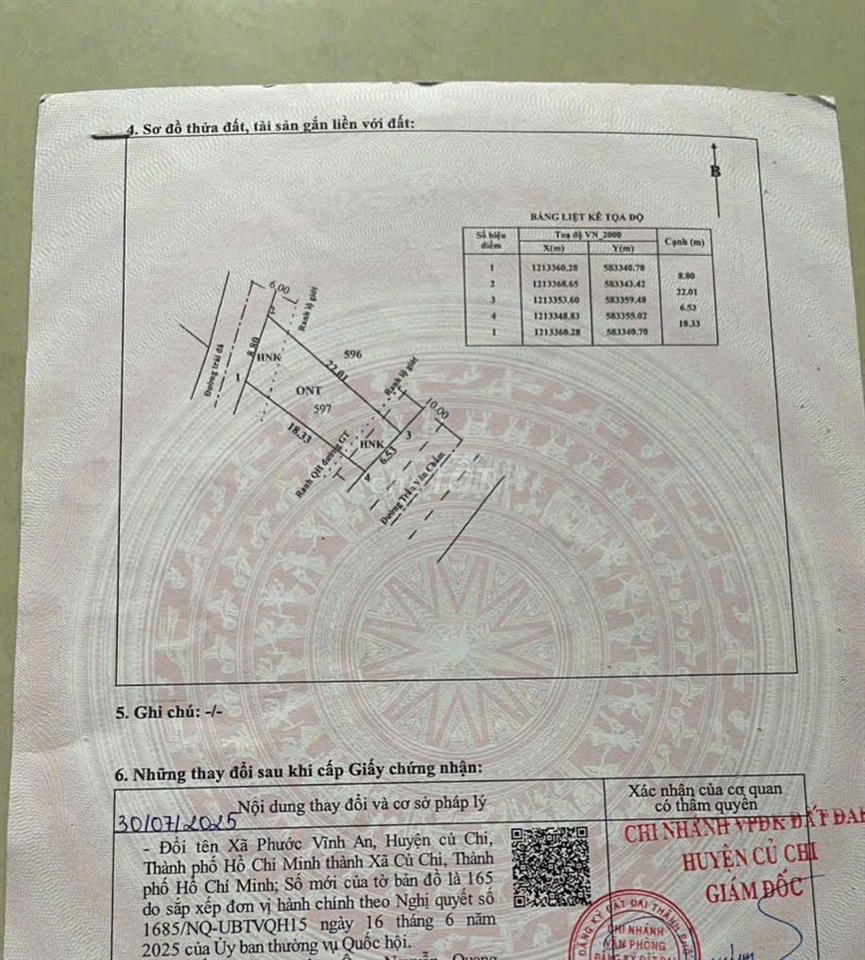 4. Sơ đồ thửa đất, tài sản gắn liền với đất:
B
BẢNG LIỆT KÊ TỌA ĐỘ
Số hiệu điểm Toạ độ VN_2000 Cạnh (m)
X(m) Y(m)
1 1213360.28 583340.70
8.80
2 1213368.65 583343.42
22.01
3 1213353.60 583359.48
6.53
4 1213348.83 583355.02
18.33
1 1213360.28 583340.70
6.00
Ranh lộ giới
2
Đường trải đá
8.80
HNK
596
22.01
1
ONT
597
Ranh lộ giới
10.00
18.33
3
HNK
6.53
4
Ranh QH đường GT
Đường Trần Văn Chẩm
chợTỐT
5. Ghi chú: -/-
6. Những thay đổi sau khi cấp Giấy chứng nhận:
Nội dung thay đổi và cơ sở pháp lý
Xác nhận của cơ quan
có thẩm quyền
30/07/2025
- Đổi tên Xã Phước Vĩnh An, Huyện củ Chi,
Thành phố Hồ Chí Minh thành Xã Củ Chi, Thành
phố Hồ Chí Minh; Số mới của tờ bản đồ là 165
do sắp xếp đơn vị hành chính theo Nghị quyết số
1685/NQ-UBTVQH15 ngày 16 tháng 6 năm
2025 của Ủy ban thường vụ Quốc hội.
CHI NHÁNH VPĐK ĐẤT ĐAI
HUYỆN CỦ CHI
GIÁM ĐỐC
ĐĂNG KÝ ĐẤT ĐAI THÀNH PHỐ
CHI NHÁNH
VĂN PHÒNG
ĐĂNG KÝ ĐẤT ĐAI
Nguyễn Quang